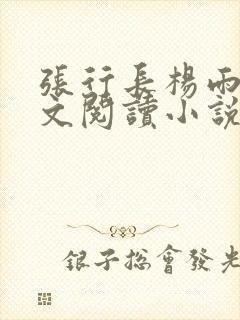 張行長楊雨
文閱讀小說
銀子總會發光